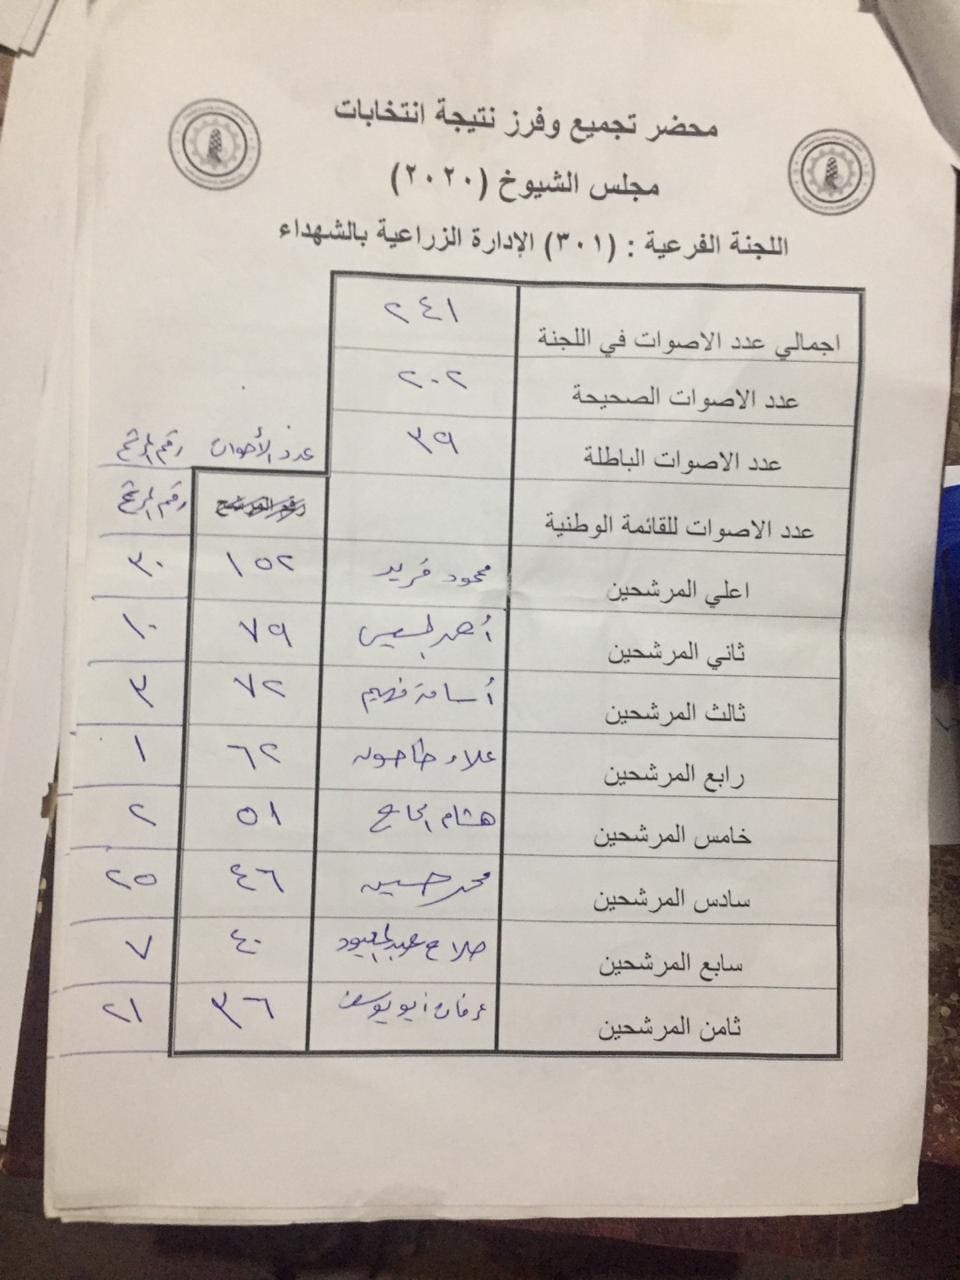 محضر تجميع وفرز نتيجة انتخابات
مجلس الشيوخ (٢٠٢٠)
اللجنة الفرعية : (٣٠١) الإدارة الزراعية بالشهداء
اجمالي عدد الاصوات في اللجنة ٢٤١
عدد الاصوات الصحيحة ٢٠٢
عدد الاصوات الباطلة ٣٩ عدد الأصوات رقم المرشح
عدد الاصوات للقائمة الوطنية رقم المرشح رقم المرشح
اعلي المرشحين محمود فريد ١٥٢ ٣٠
ثاني المرشحين أحمد ٧٩ ١٠
ثالث المرشحين أسامة فهيم ٧٢ ٣
رابع المرشحين علاء طاحون ٦٢ ١
خامس المرشحين هشام الحاج ٥١ ٢
سادس المرشحين محمد حسين ٤٦ ٢٥
سابع المرشحين صلاح عبد المعبود ٤٠ ٧
ثامن المرشحين عرفات أبو يوسف ٣٦ ٢١